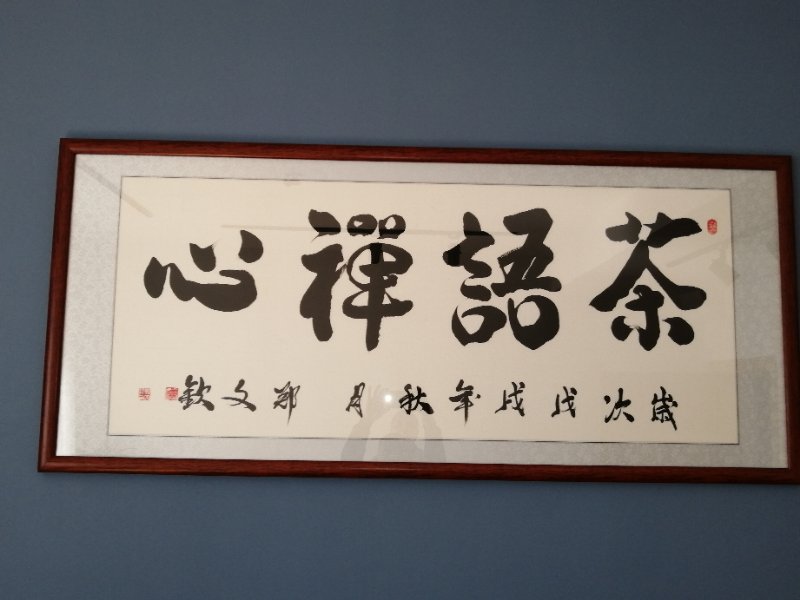 茶語禪心
歲次戊戌年秋月 鄭文欽